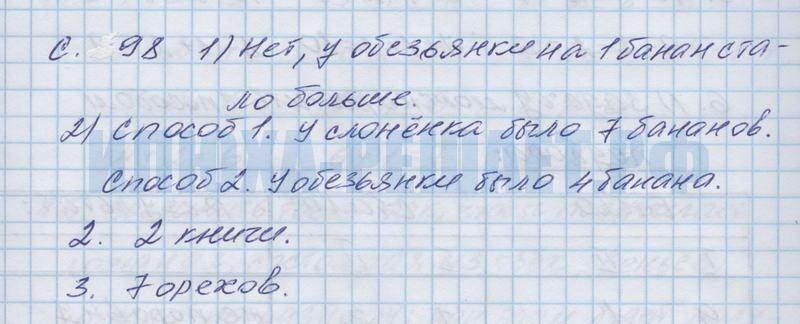 с. 98 1) Нет, у обезьянки на 1 банан ста-
ло больше.
2) Способ 1. У слонёнка было 7 бананов.
Способ 2. У обезьянки было 4 банана.
2. 2 книги.
3. 7 орехов.